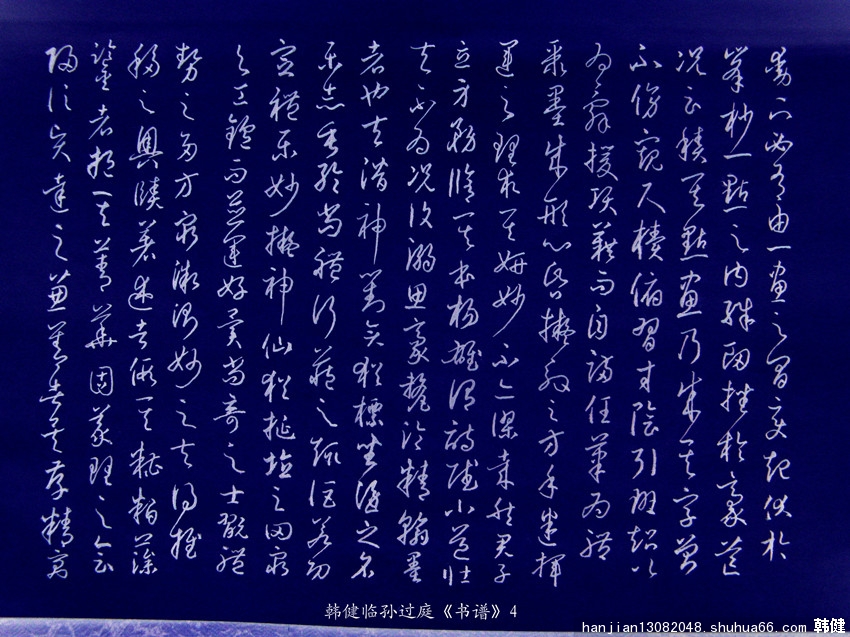 動下必有由一畫之間變起伏於
峯杪一點之內殊衄挫於豪芒
況云積其點畫乃成其字曾
不傍窺尺櫝俯習寸陰引班超以
為辭援項籍而自滿任筆為體
聚墨成形心昏擬效之方手迷揮
運之理求其妍妙不亦謬哉然君子
立身務脩其本楊雄謂詩賦小道壯
夫不為況復溺思豪氂淪精翰墨
者也夫潛神對奕猶標坐隱之名
樂志垂綸尚體行藏之趣詎若功
宣禮樂妙擬神仙猶埏埴之罔窮
與工鑪而並運好異尚奇之士翫體
勢之多方窮微測妙之夫得推
移之奧賾著述者假其糟粕藻
鑒者挹其菁華固義理之會
歸信賢達之兼善矣存精寓
韩健临孙过庭《书谱》4
hanjian13082048.shuhua66.com 韩健